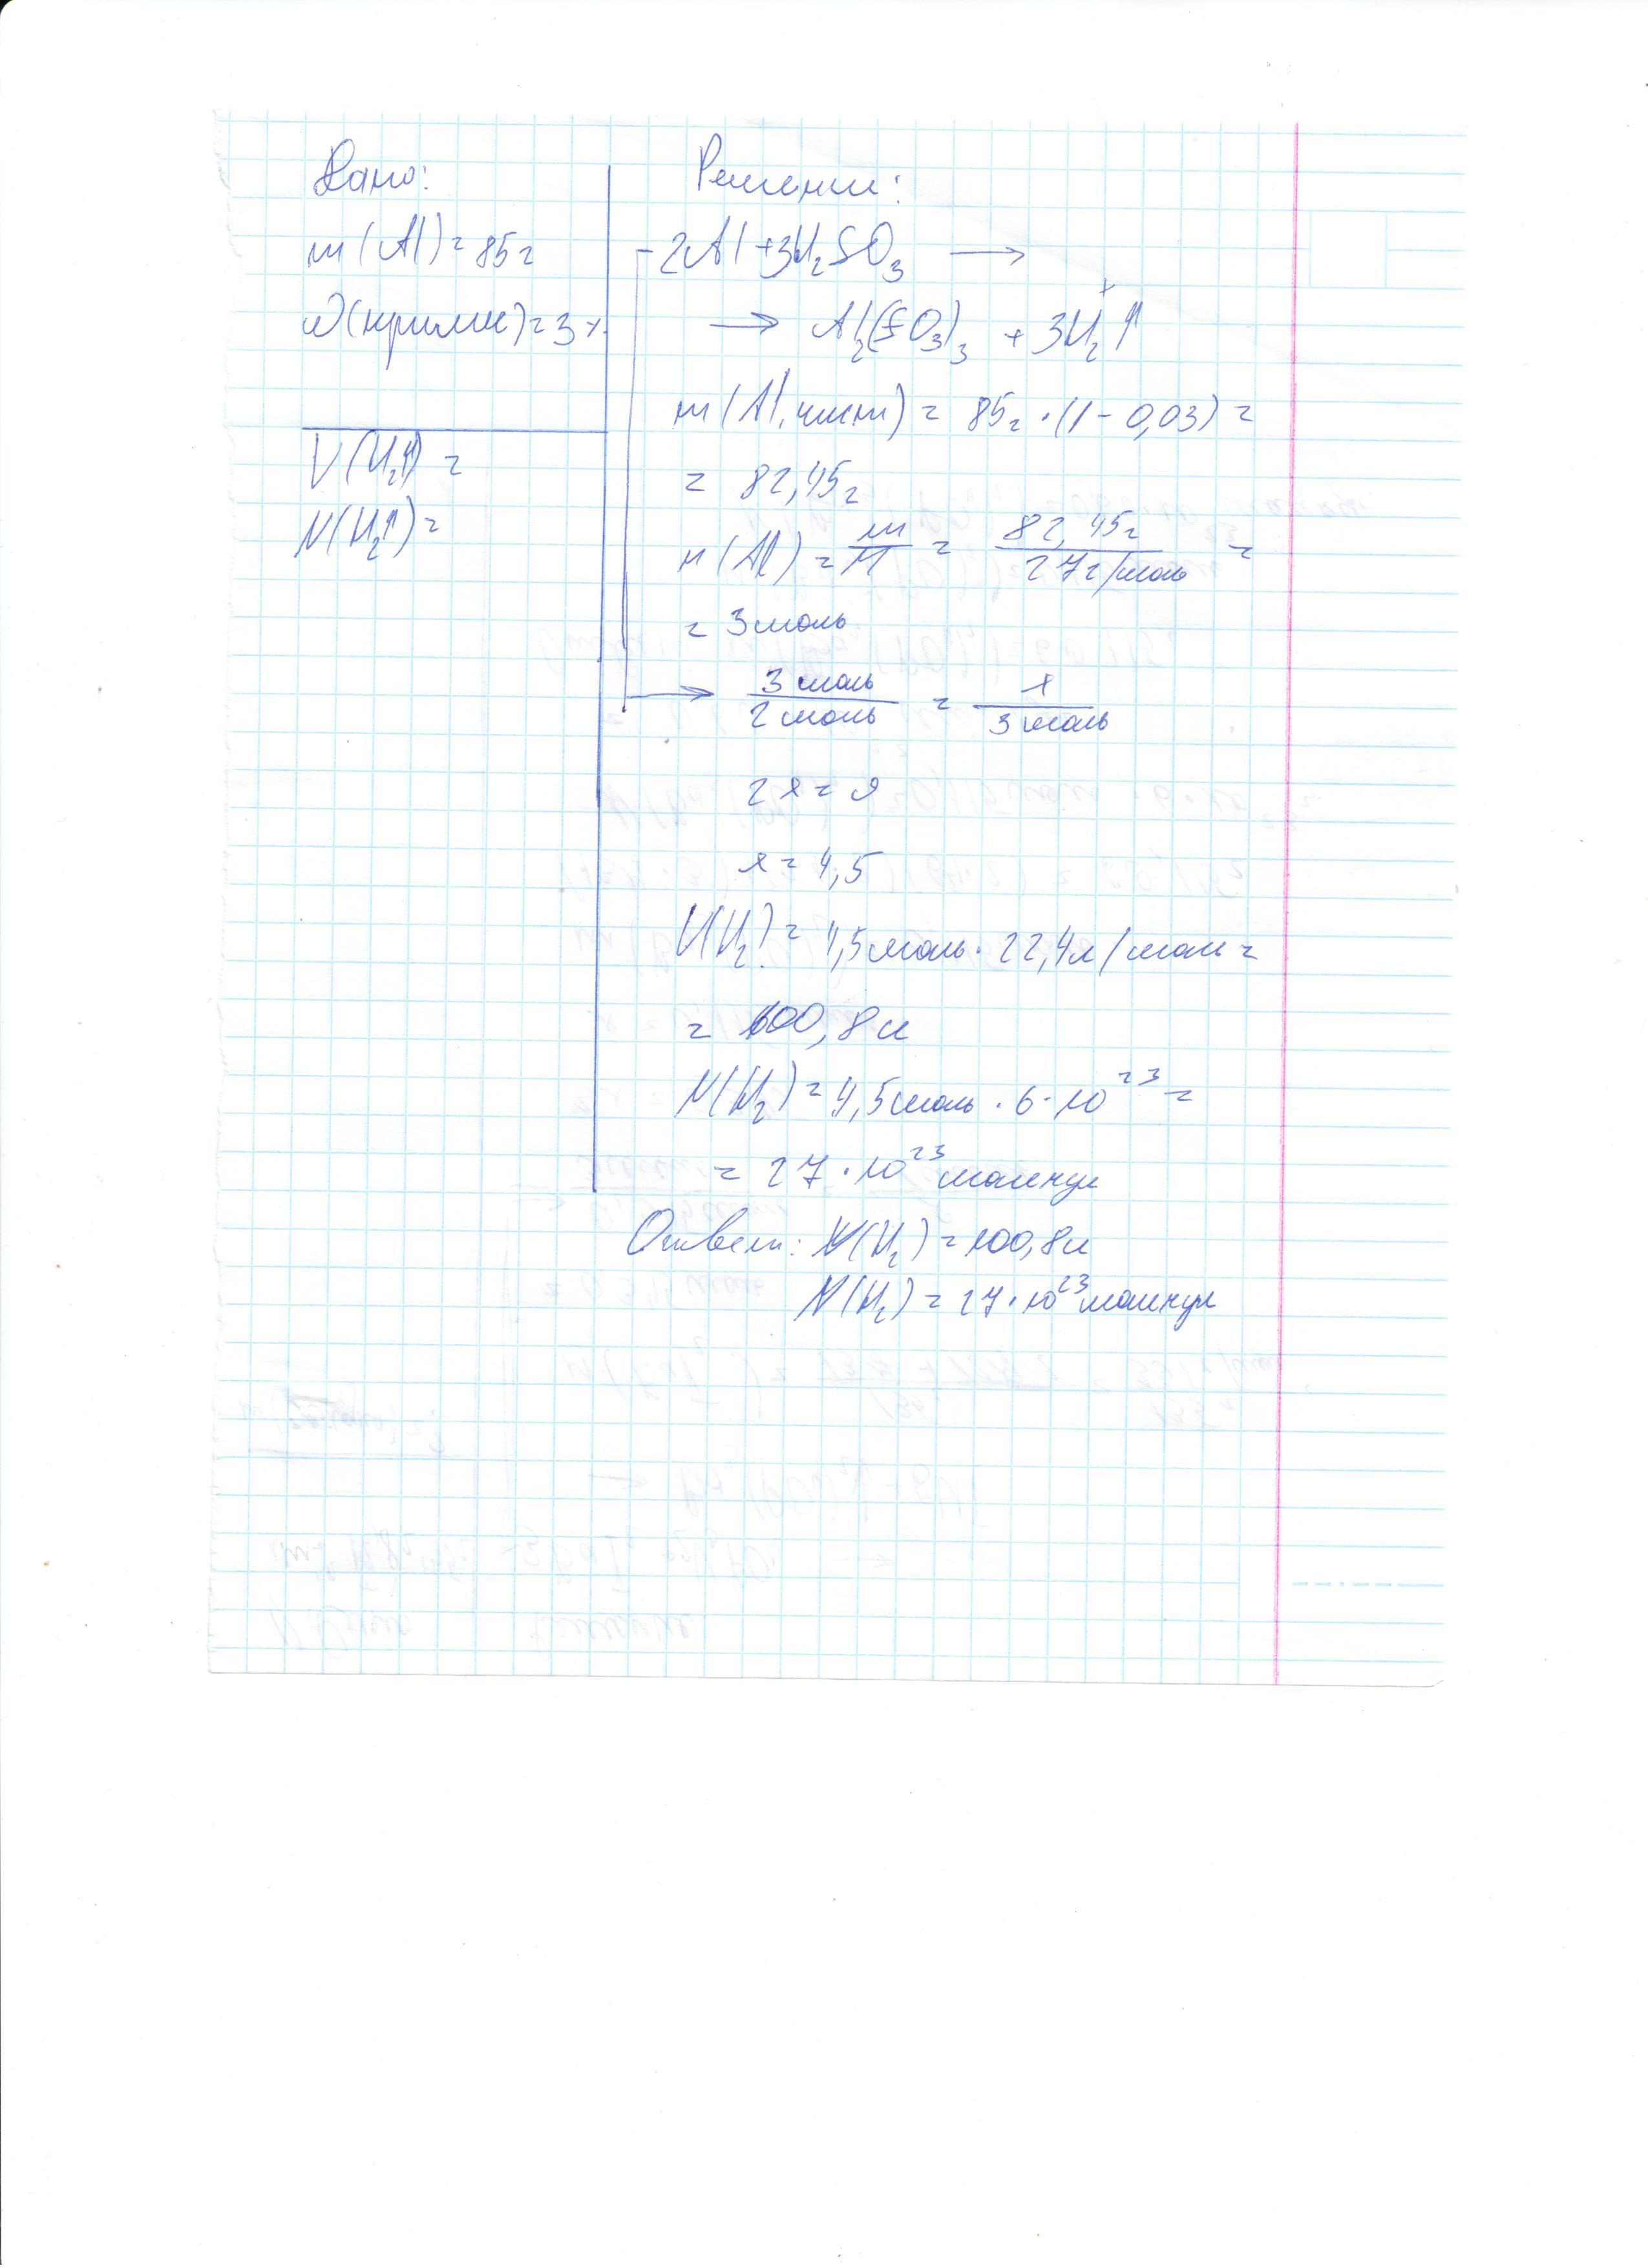 Дано:
m(Al) = 85г
ω(примес) = 3%
V(H₂↑) =
N(H₂↑) =
Решение:
2Al + 3H₂SO₃ →
→ Al₂(SO₃)₃ + 3H₂↑
x
m(Al, чист) = 85г · (1 - 0,03) =
= 82,45г
n(Al) = m/M = 82,45г/27г/моль =
= 3 моль
→ 3 моль/2 моль = x/3 моль
2x = 9
x = 4,5
V(H₂) = 4,5 моль · 22,4 л/моль =
= 100,8 л
N(H₂) = 4,5 моль · 6 · 10²³ =
= 27 · 10²³ молекул
Ответ: V(H₂) = 100,8 л
N(H₂) = 27 · 10²³ молекул